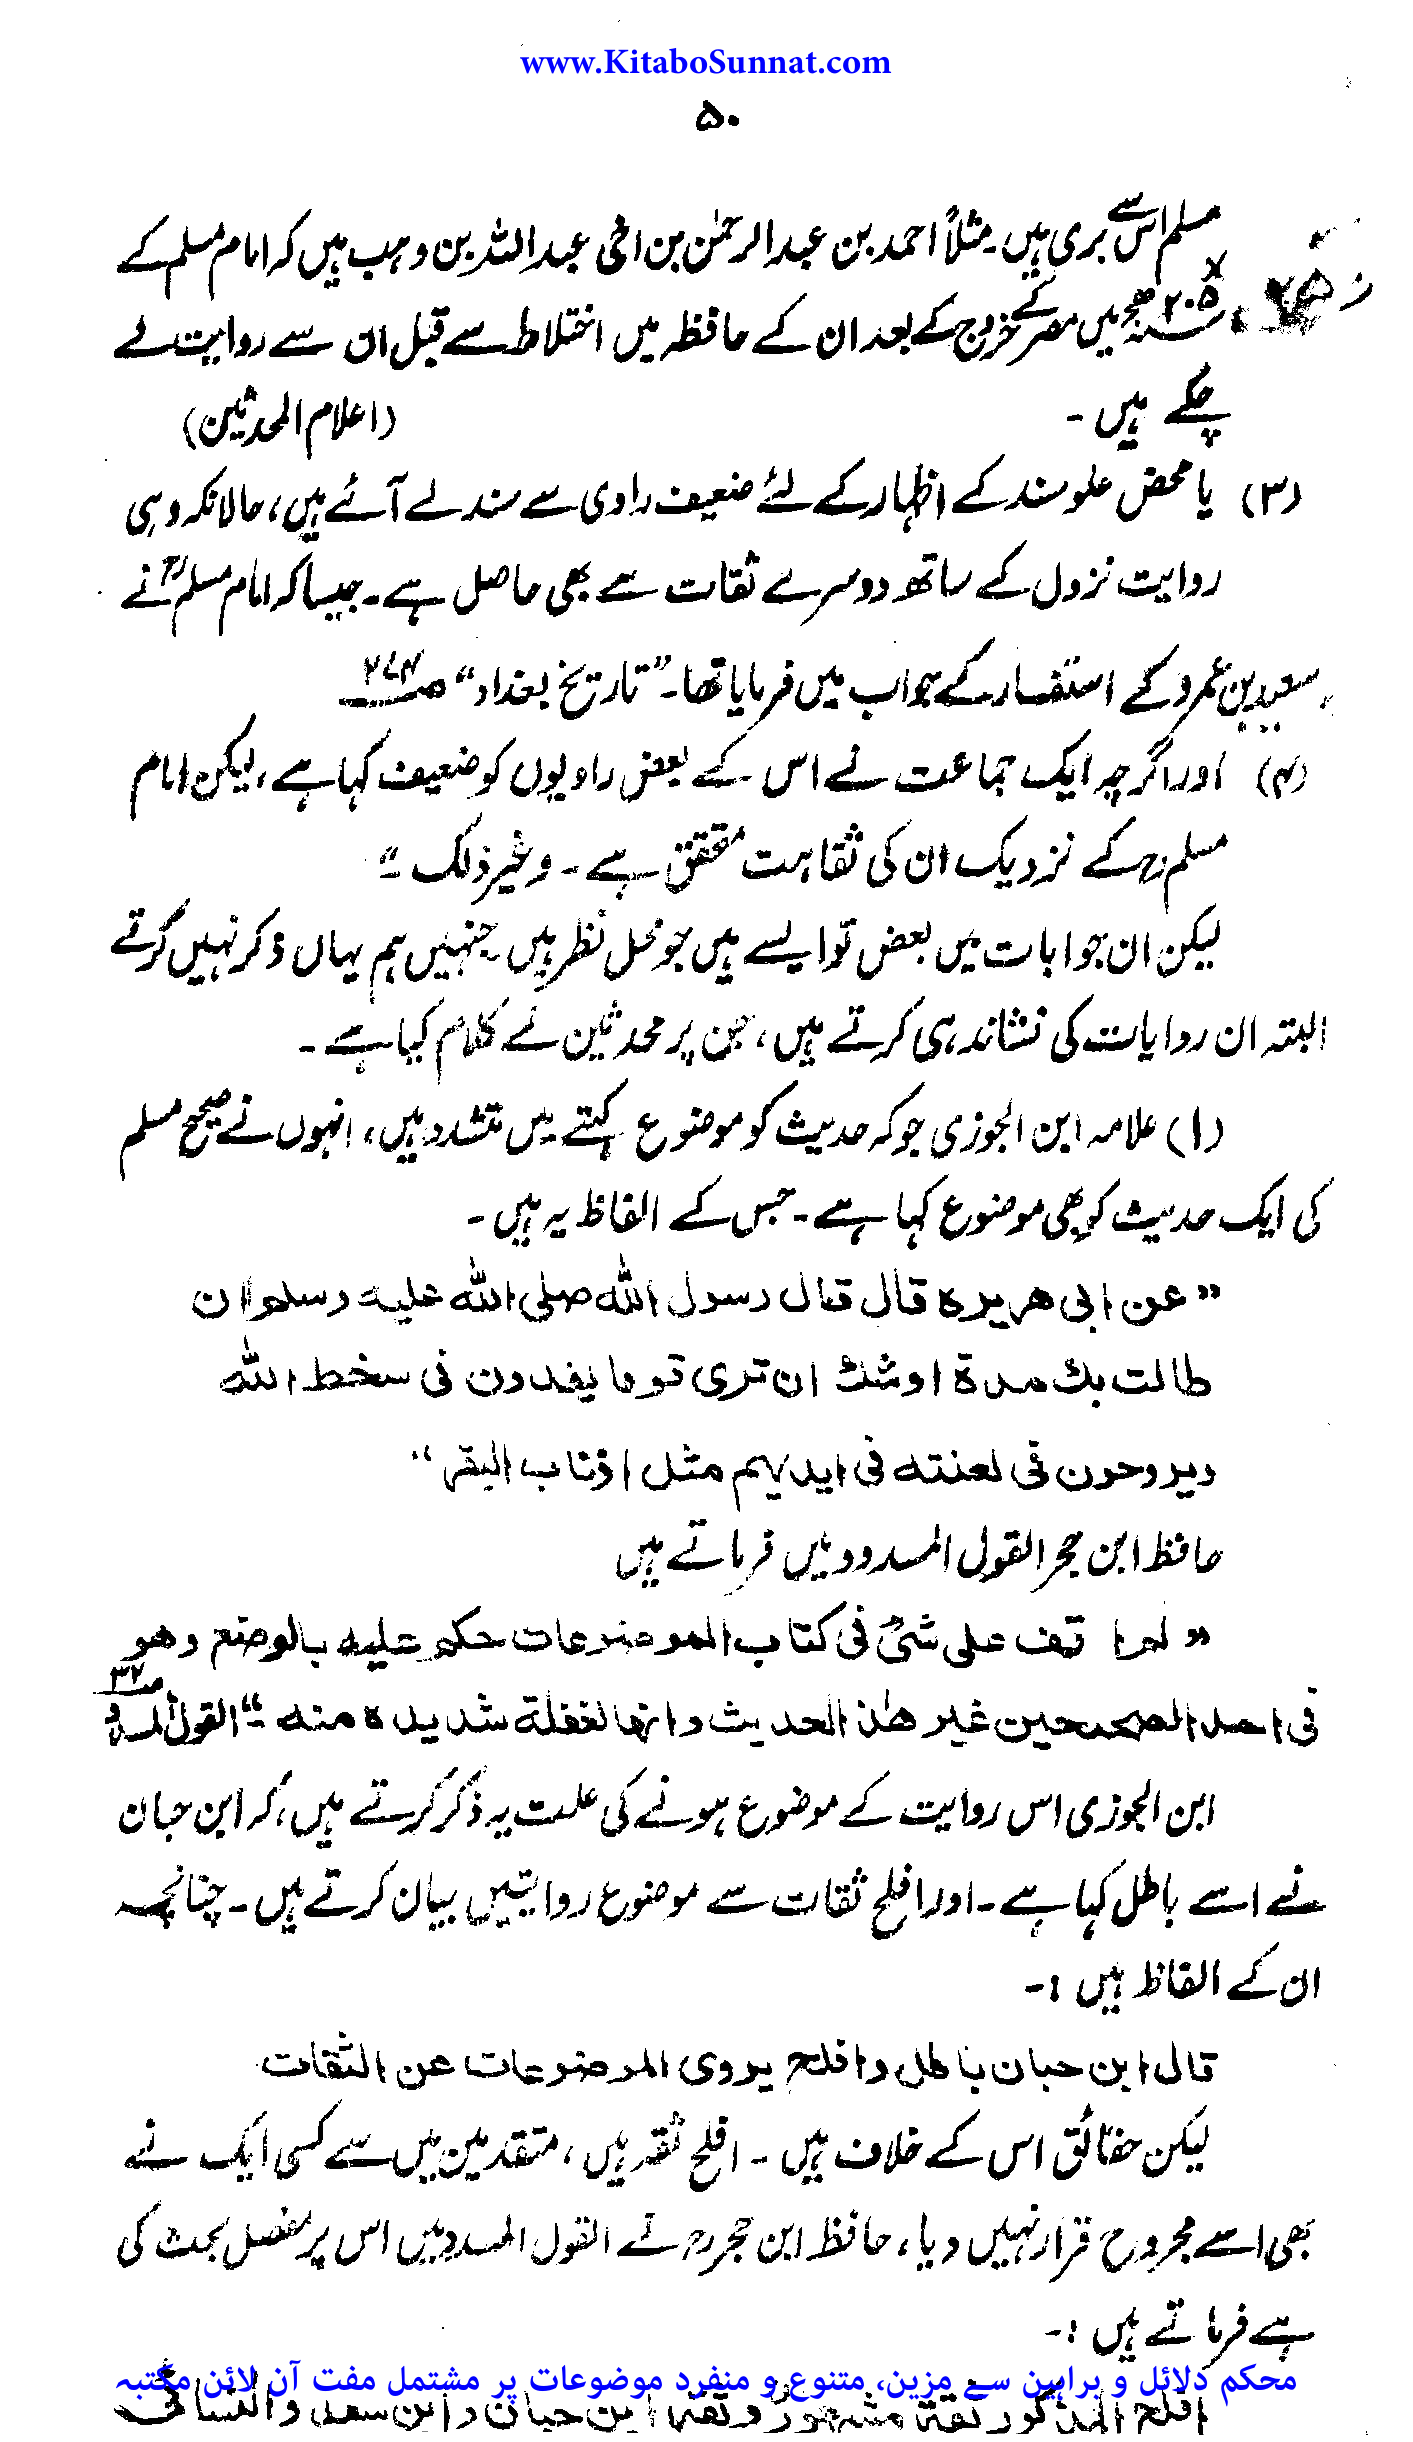 www.KitaboSunnat.com
۵۰
مسلم اس سے بری ہیں۔ مثلاً احمد بن عبدالرحمٰن بن اخی عبداللہ بن وہب ہیں کہ امام مسلم کے
۲۰۵ھ میں مصر کے خروج کے بعد ان کے حافظہ میں اختلاط سے قبل ان سے روایت لے
چکے ہیں۔ (اعلام المحدثین)
(۳) یا محض علو سند کے اظہار کے لئے ضعیف راوی سے سند لے آئے ہیں، حالانکہ وہی
روایت نزول کے ساتھ دوسرے ثقات سے بھی حاصل ہے۔ جیسا کہ امام مسلمؒ نے
سعید بن عمرو کے استفسار کے جواب میں فرمایا تھا۔ "تاریخ بغداد" ص
(۴) اور اگرچہ ایک جماعت نے اس کے بعض راویوں کو ضعیف کہا ہے، لیکن امام
مسلمؒ کے نزدیک ان کی ثقاہت محقق ہے۔ وغیر ذلک۔"
لیکن ان جوابات میں بعض تو ایسے ہیں جو محل نظر ہیں۔ جنہیں ہم یہاں ذکر نہیں کرتے
البتہ ان روایات کی نشاندہی کرتے ہیں، جن پر محدثین نے کلام کیا ہے۔
(۱) علامہ ابن الجوزی جو کہ حدیث کو موضوع کہنے میں متشدد ہیں، انہوں نے صحیح مسلم
کی ایک حدیث کو بھی موضوع کہا ہے۔ جس کے الفاظ یہ ہیں۔
"عن ابی ھریرہ قال قال رسول اللہ صلی اللہ علیہ وسلم ان
طالت بک مدۃ اوشک ان تری قوما یغدون فی سخط اللہ
ویروحون فی لعنتہ فی ایدیہم مثل اذناب البقر"
حافظ ابن حجر القول المسدد میں فرماتے ہیں
"لم اقف علی شئ فی کتاب الموضوعات حکم علیہ بالوضع وھو
فی احد الصحیحین غیر ھٰذا الحدیث وانھا لغفلۃ شدیدہ منہ۔" القول المسدد ص۳۲
ابن الجوزی اس روایت کے موضوع ہونے کی علت یہ ذکر کرتے ہیں، کہ ابن حبان
نے اسے باطل کہا ہے۔ اور افلح ثقات سے موضوع روایتیں بیان کرتے ہیں۔ چنانچہ
ان کے الفاظ ہیں :۔
قال ابن حبان باطل وافلح یروی الموضوعات عن الثقات
لیکن حقائق اس کے خلاف ہیں ۔ افلح ثقہ ہیں، متقدمین میں سے کسی ایک نے
بھی اسے مجروح قرار نہیں دیا، حافظ ابن حجرؒ نے القول المسدد میں اس پر مفصل بحث کی
ہے فرماتے ہیں :۔
محکم دلائل و براہین سے مزین، متنوع و منفرد موضوعات پر مشتمل مفت آن لائن مکتبہ
افلح المذکور ثقۃ مشہور وثقہ ابن حبان وابن سعد والنسائی